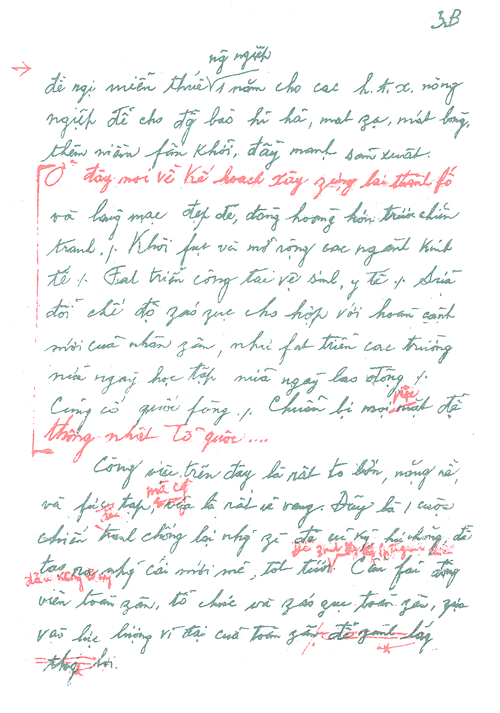 3B
ng ngiệp
đề ngị miễn thuế √ 1 năm cho các h.t.x. nông
ngiệp để cho đỡ bão hỉ hả, mat zạ, mát lòng,
thêm niềm fấn khởi, đẩy mạnh sản xuất.
Ở đây nói về kế hoach xây zựng lại thành fố
và làng mạc đẹp đẽ, đàng hoàng hơn trước chiến
tranh./. Khôi fục và mở rộng các ngành kinh
tế ./. Fat triển công tác vệ sinh, y tế ./. Sửa
đổi chế độ záo zục cho hợp với hoàn cảnh
mới của nhân zân, như fat triển các trường
nửa ngày học tập nửa ngày lao động ./.
Củng cố quốc fòng ./. Chuẩn bị mọi mặt để
việc
thống nhất Tổ quốc....
Công việc trên đây là rất to lớn, nặng nề,
và fức tạp, mà cũng là rất vẻ vang. Đây là 1 cuộc
chiến đấu
chống lại nhg zì đã cũ kỹ, hư hỏng, để
tạo ra nhg cái mới mẻ, tốt tươi. Cần fải động
viên toàn zân, tổ chức và záo zục toàn zân, zựa
vào lực lượng vĩ đại của toàn zân. để zành lấy
thắg lợi.